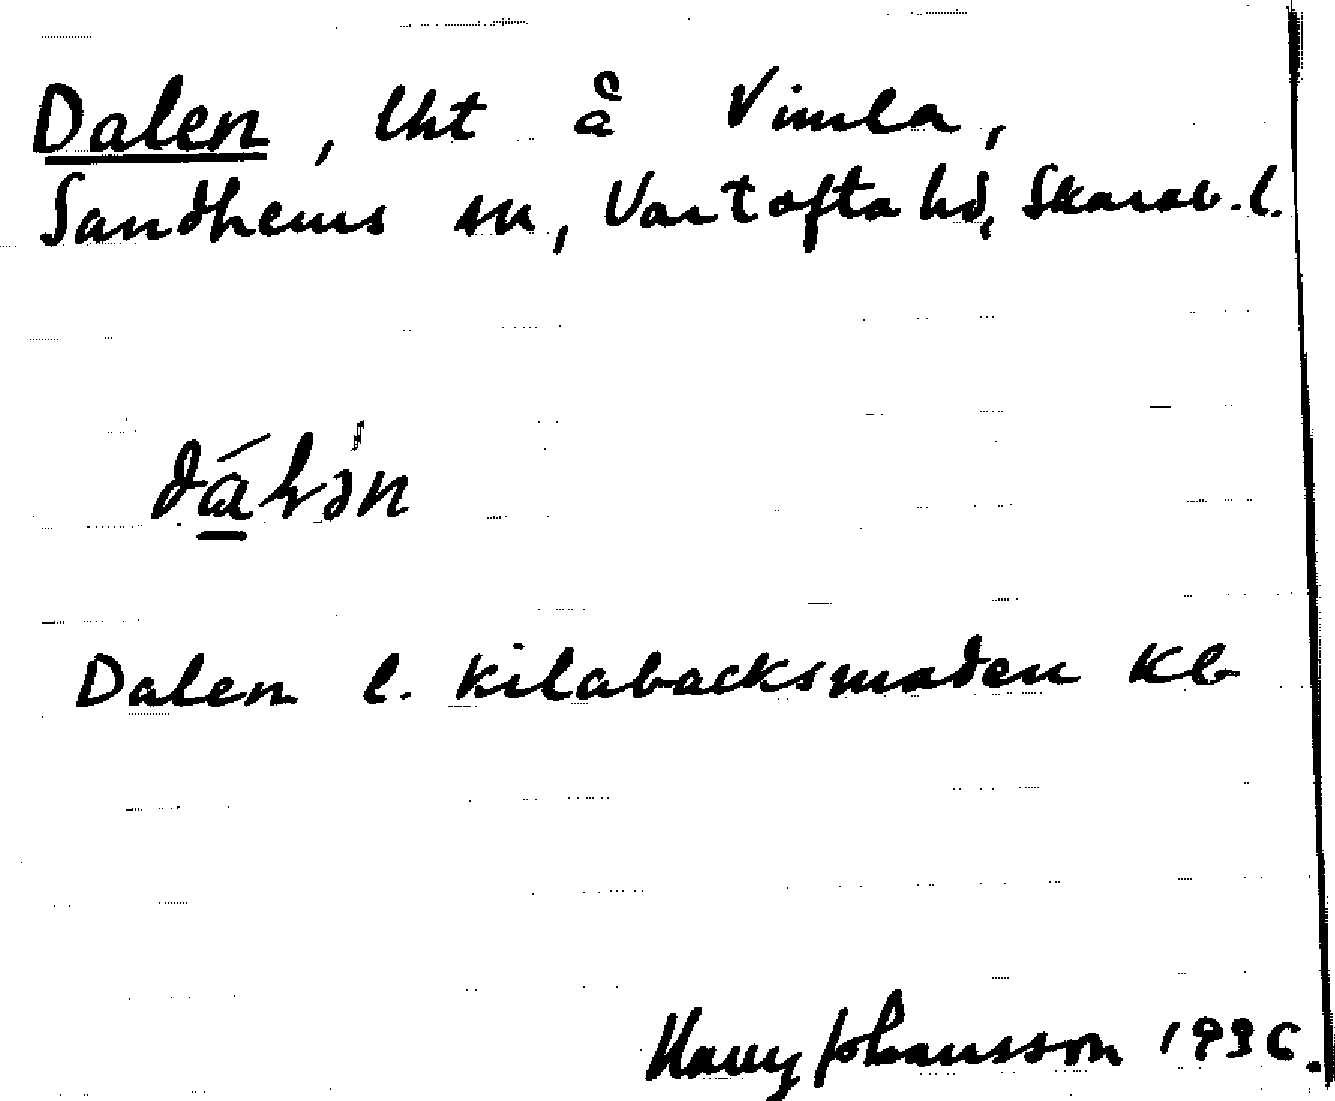 Dalen, lht å Vimla,
Sandhems sn, Vartofta hd, Skarab. l.
Dalen l. Kilabacksmaden Kb
Harry Johansson 1936.